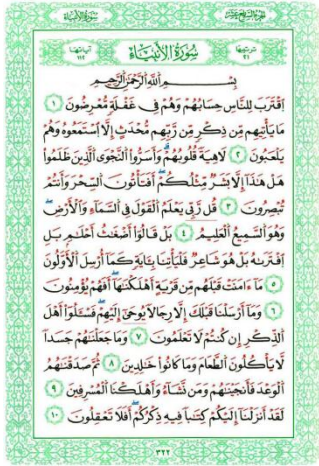 سُورَةُ الأَنبيَاءِ
ترتيبها ٢١
آياتها ١١٢
بِسْمِ اللَّهِ الرَّحْمَٰنِ الرَّحِيمِ
اِقْتَرَبَ لِلنَّاسِ حِسَابُهُمْ وَهُمْ فِي غَفْلَةٍ مُعْرِضُونَ ١
مَا يَأْتِيهِم مِّن ذِكْرٍ مِّن رَّبِّهِم مُّحْدَثٍ إِلَّا اسْتَمَعُوهُ وَهُمْ
يَلْعَبُونَ ٢ لَاهِيَةً قُلُوبُهُمْ وَأَسَرُّوا النَّجْوَى الَّذِينَ ظَلَمُوا
هَلْ هَذَا إِلَّا بَشَرٌ مِّثْلُكُمْ أَفَتَأْتُونَ السِّحْرَ وَأَنتُمْ
تُبْصِرُونَ ٣ قُل رَّبِّي يَعْلَمُ الْقَوْلَ فِي السَّمَاءِ وَالْأَرْضِ
وَهُوَ السَّمِيعُ الْعَلِيمُ ٤ بَلْ قَالُوا أَضْغَاثُ أَحْلَامٍ بَلِ
افْتَرَاهُ بَلْ هُوَ شَاعِرٌ فَلْيَأْتِنَا بِآيَةٍ كَمَا أُرْسِلَ الْأَوَّلُونَ
٥ مَا آمَنَتْ قَبْلَهُم مِّن قَرْيَةٍ أَهْلَكْنَاهَا أَفَهُمْ يُؤْمِنُونَ
٦ وَمَا أَرْسَلْنَا قَبْلَكَ إِلَّا رِجَالًا يُوحَى إِلَيْهِمْ فَسْئَلُوا أَهْلَ
الذِّكْرِ إِن كُنتُمْ لَا تَعْلَمُونَ ٧ وَمَا جَعَلْنَاهُمْ جَسَدًا
لَّا يَأْكُلُونَ الطَّعَامَ وَمَا كَانُوا خَالِدِينَ ٨ ثُمَّ صَدَقْنَاهُمُ
الْوَعْدَ فَأَنجَيْنَاهُمْ وَمَن نَّشَاءُ وَأَهْلَكْنَا الْمُسْرِفِينَ ٩
لَقَدْ أَنزَلْنَا إِلَيْكُمْ كِتَابًا فِيهِ ذِكْرُكُمْ أَفَلَا تَعْقِلُونَ ١٠
٣٢٢